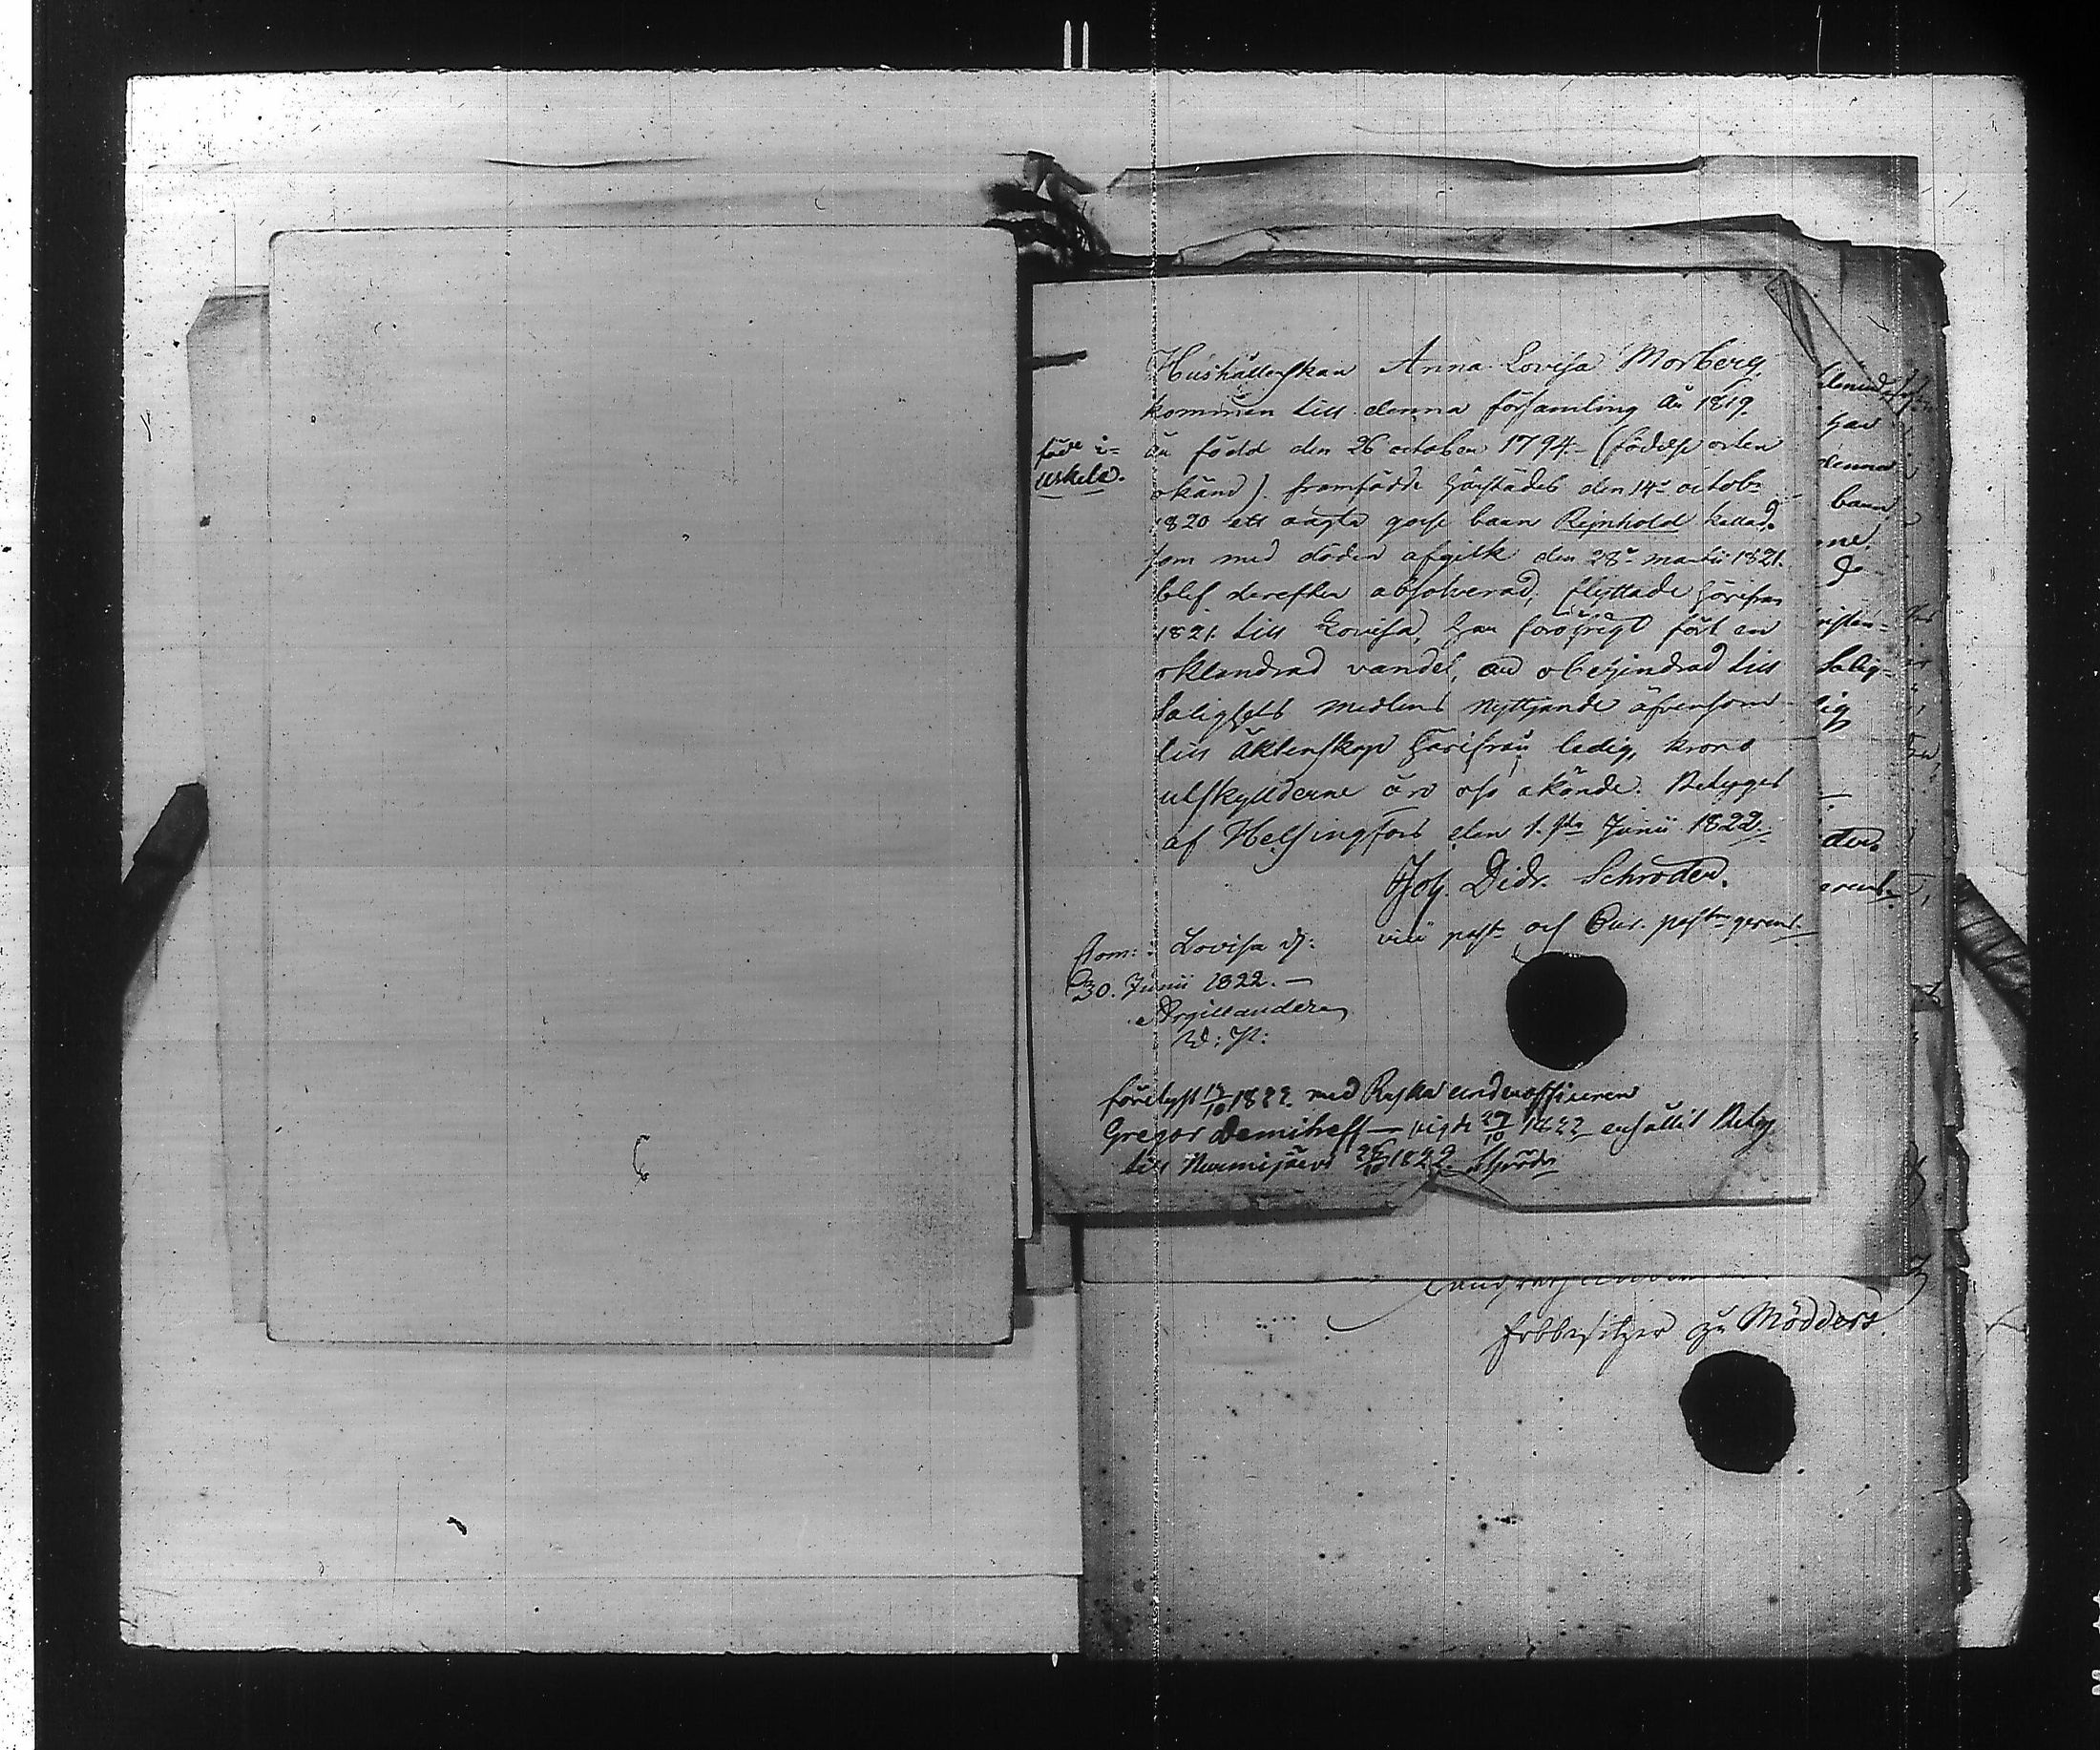 Hushållerskan Anna Lovisa Morberg,
kommen till denna församling År 1819.
är född den 26 october 1794 - (födelse orten
född i
Uskela.
okänd). framfödde härstädes den 14de octobr
1820 ett oägta gosse barn Rejnhold kallad.
som med döden afgick den 28de martii 1821.
blef derefter absolverad, flyttade härifrån
1821. till Lovisa, har föröfrigt fört en
oklandrad vandel, är obehindrad till
Salighets medlens nyttjande äfvensom
till Äktenskap härifrån ledig, krono
utskylderne äro oss okände. Betyges
af Helsingfors den 1.sta Junii 1822.
Joh. Didr. Schroder.
vice past. och Cur. past. gerens.
Lovisa d:
30. Junii 1822. —
Argillander
V: P:
förelyst 1822 med Ryska underofficeren
Gregor Demitreff — vigde 27/10 1822 erhållit Betyg
till Nurmijärvi 28/10 1822.
denna
barn
Salig-
Erbbesitzer zu Mödders.